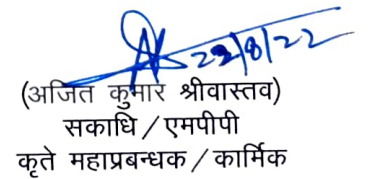 22/8/22
(अजित कुमार श्रीवास्तव)
सकाधि / एमपीपी
कृते महाप्रबन्धक / कार्मिक